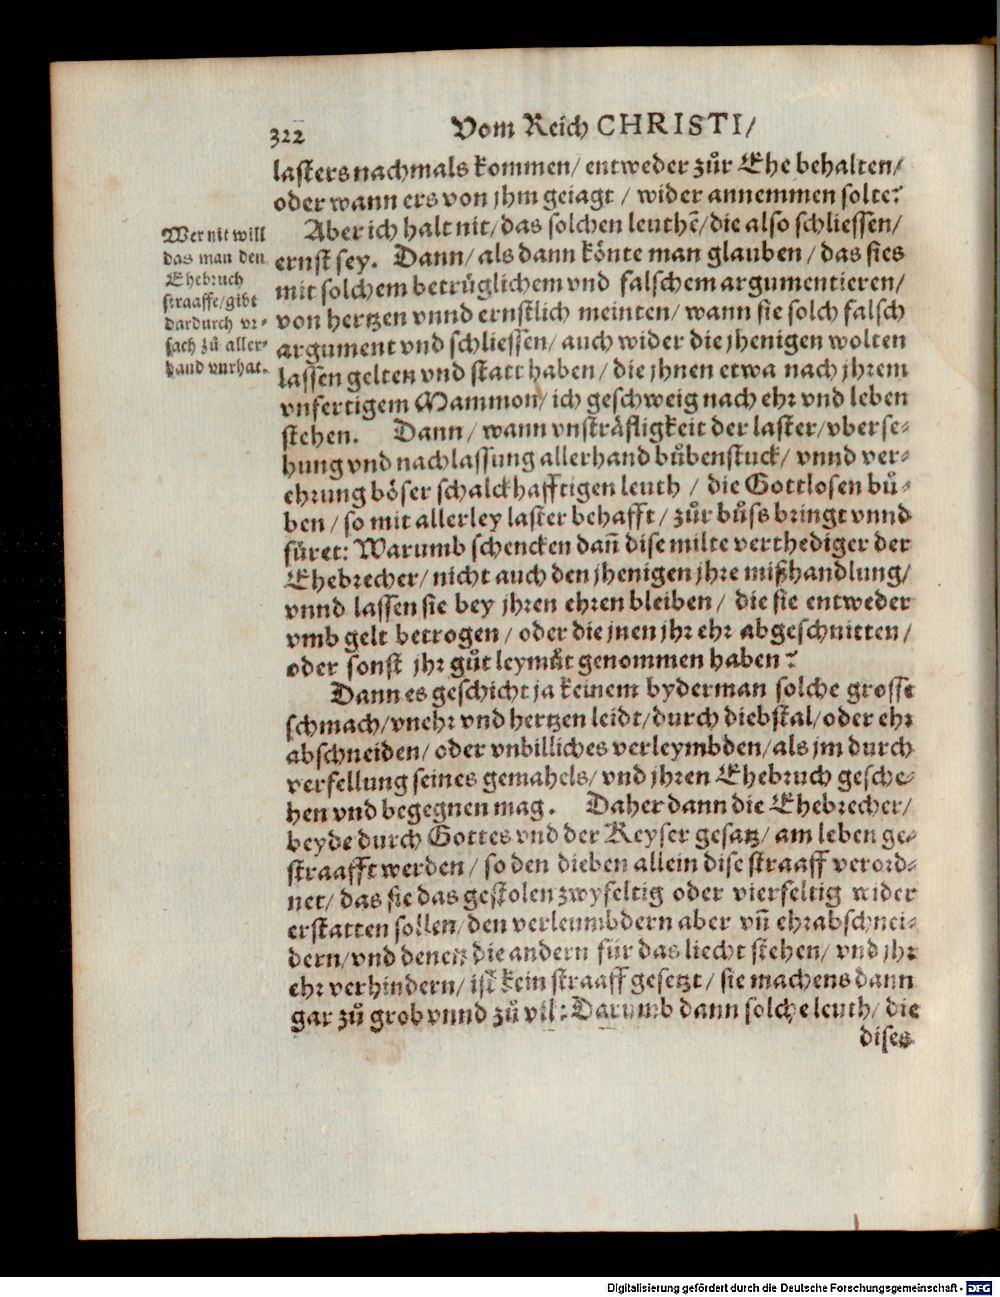 322 Vom Reich CHRISTI/
lasters nachmals kommen/ entweder zůr Ehe behalten/
oder wann ers von jhm geiagt / wider annemmen solte?
Aber ich halt nit/ das solchen leuthẽ/ die also schliessen/
ernst sey. Dann/ als dann könte man glauben / das sies
mit solchem betrüglichem vnd falschem argumentieren/
von hertzen vnnd ernstlich meinten/ wann sie solch falsch
argument vnd schliessen/ auch wider die jhenigen wolten
lassen gelten vnd statt haben/ die jhnen etwa nach jhrem
vnfertigem Mammon/ ich geschweig nach ehr vnd leben
stehen. Dann/ wann vnsträfligkeit der laster/ vberse-
hung vnd nachlassung allerhand bůbenstuck/ vnnd ver-
ehrung böser schalckhafftigen leuth / die Gottlosen bů-
ben / so mit allerley laster behafft / zůr bůss bringt vnnd
füret: Warumb schencken dañ dise milte verthediger der
Ehebrecher/ nicht auch den jhenigen jhre mißhandlung/
vnnd lassen sie bey jhren ehren bleiben / die sie entweder
vmb gelt betrogen / oder die jnen jhr ehr abgeschnitten /
oder sonst jhr gůt leymůt genommen haben?
Dann es geschicht ja keinem byderman solche grosse
schmach/ vnehr vnd hertzen leidt/ durch diebstal/ oder ehr
abschneiden/ oder vnbilliches verleymbden/ als jm durch
verfellung seines gemahels/ vnd jhren Ehebruch gesche-
hen vnd begegnen mag. Daher dann die Ehebrecher/
beyde durch Gottes vnd der Keyser gesatz/ am leben ge-
straafft werden / so den dieben allein dise straaff verord-
net/ das sie das gestolen zwyfeltig oder vierfeltig wider
erstatten sollen/ den verleumbdern aber vñ ehrabschnei-
dern/ vnd denen die andern für das liecht stehen/ vnd jhr
ehr verhindern/ ist kein straaff gesetzt / sie machens dann
gar zů grob vnnd zů vil: Darumb dann solche leuth/ die
dises
Wer nit will
das man den
Ehebruch
straaffe/ gibt
dardurch vr-
sach zů aller-
hand vnrhat.
Digitalisierung gefördert durch die Deutsche Forschungsgemeinschaft - DFG